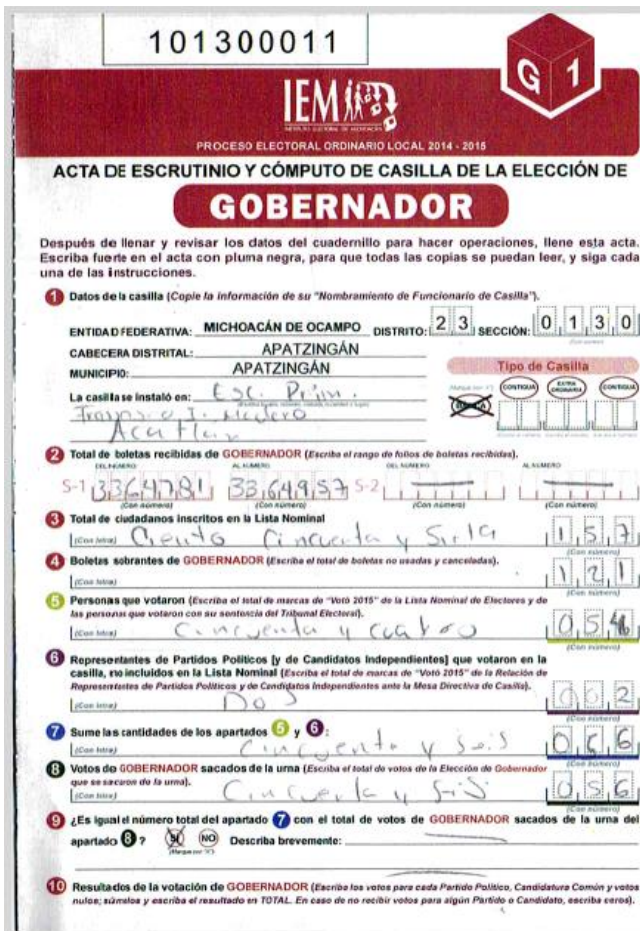 101300011
G 1
IEM
INSTITUTO ELECTORAL DE MICHOACÁN
PROCESO ELECTORAL ORDINARIO LOCAL 2014 - 2015
ACTA DE ESCRUTINIO Y CÓMPUTO DE CASILLA DE LA ELECCIÓN DE
GOBERNADOR
Después de llenar y revisar los datos del cuadernillo para hacer operaciones, llene esta acta.
Escriba fuerte en el acta con pluma negra, para que todas las copias se puedan leer, y siga cada
una de las instrucciones.
1 Datos de la casilla (Copie la información de su "Nombramiento de Funcionario de Casilla").
ENTIDAD FEDERATIVA: MICHOACÁN DE OCAMPO DISTRITO: 23 SECCIÓN: 0130
CABECERA DISTRITAL: APATZINGÁN
MUNICIPIO: APATZINGÁN
Tipo de Casilla
La casilla se instaló en: Esc. Prim.
CONTIGUA EXTRA ORDINARIA CONTIGUA
Francisco I. Madero
2 Total de boletas recibidas de GOBERNADOR (Escriba el rango de folios de boletas recibidas).
DEL NÚMERO AL NÚMERO DEL NÚMERO AL NÚMERO
S-1 3364781 3364957 S-2
(Con número) (Con número) (Con número) (Con número)
3 Total de ciudadanos inscritos en la Lista Nominal
(Con letra) Ciento Cincuenta y Siete 157
(Con número)
4 Boletas sobrantes de GOBERNADOR (Escriba el total de boletas no usadas y canceladas).
(Con letra) 121
(Con número)
5 Personas que votaron (Escriba el total de marcas de "Votó 2015" de la Lista Nominal de Electores y de
las personas que votaron con su sentencia del Tribunal Electoral).
(Con letra) Cincuenta y cuatro 054
(Con número)
6 Representantes de Partidos Políticos [y de Candidatos Independientes] que votaron en la
casilla, no incluidos en la Lista Nominal (Escriba el total de marcas de "Votó 2015" de la Relación de
Representantes de Partidos Políticos y de Candidatos Independientes ante la Mesa Directiva de Casilla).
(Con letra) Dos 002
(Con número)
7 Sume las cantidades de los apartados 5 y 6:
(Con letra) Cincuenta y seis 056
(Con número)
8 Votos de GOBERNADOR sacados de la urna (Escriba el total de votos de la Elección de Gobernador
que se sacaron de la urna).
(Con letra) Cincuenta y seis 056
(Con número)
9 ¿Es igual el número total del apartado 7 con el total de votos de GOBERNADOR sacados de la urna del
apartado 8? SÍ NO Describa brevemente:
(Marque con "X")
10 Resultados de la votación de GOBERNADOR (Escriba los votos para cada Partido Político, Candidatura Común y votos
nulos; súmelos y escriba el resultado en TOTAL. En caso de no recibir votos para algún Partido o Candidato, escriba ceros).